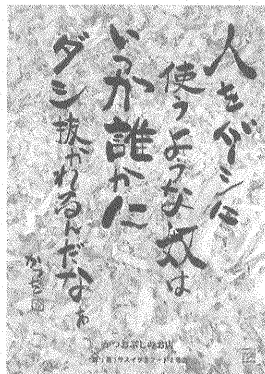 人をダシに
使うような奴は
いつか誰かに
ダシ抜かれるんだなぁ
かつを
かつおぶしのお店